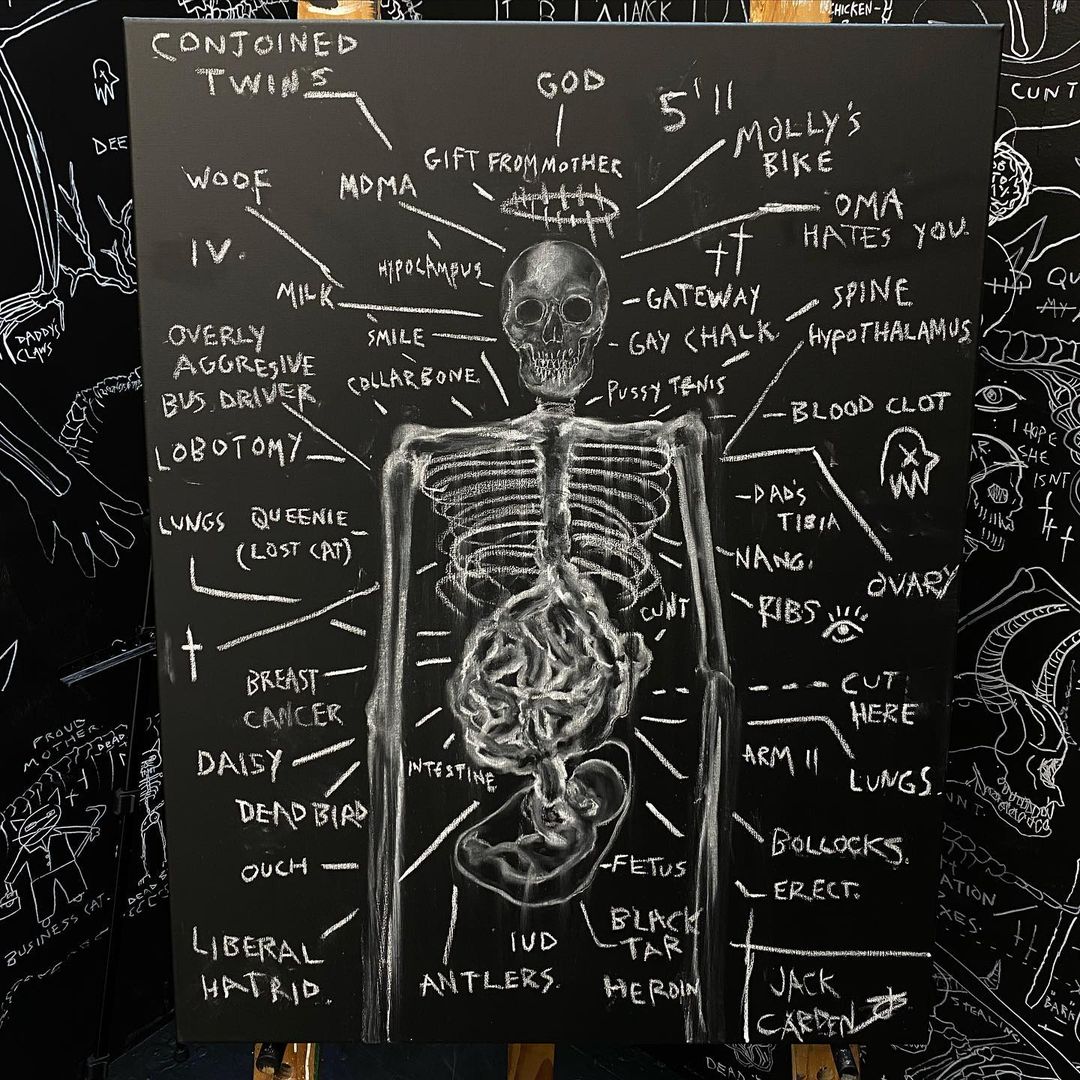 CONJOINED
TWINS
GOD
5'11
MOLLY'S
BIKE
GIFT FROM MOTHER
WOOF
MDMA
OMA
HATES YOU.
IV.
HYPOCAMPUS
MILK
GATEWAY
SPINE
SMILE
GAY CHALK
HYPOTHALAMUS
OVERLY
AGGRESIVE
BUS DRIVER
COLLARBONE
PUSSY TENIS
BLOOD CLOT
LOBOTOMY
DAD'S
TIBIA
LUNGS
QUEENIE
(LOST CAT)
NANG.
OVARY
RIBS
CUNT
BREAST
CANCER
CUT
HERE
DAISY
INTESTINE
ARM II
LUNGS.
DEAD BIRD
BOLLOCKS.
OUCH
FETUS
ERECT.
LIBERAL
HATRID.
IUD
ANTLERS.
BLACK
TAR
HEROIN
JACK
CARDEN
CHICKEN-
DEE
DADDY'S
CLAWS
CUNT
I HOPE
SHE
ISNT
PROUD
MOTHER.
DEAD
BUSINESS CAT.
STEALING
"BARK"
DEAD